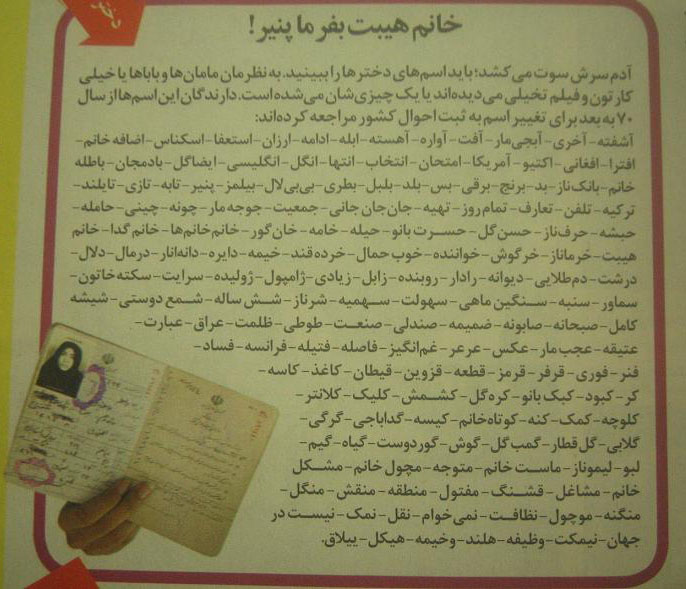 دختر
خانم هیبت بفرما پنیر!
آدم سرش سوت می‌کشد؛ باید اسم‌های دخترها را ببینید. به نظرمان مامان‌ها و باباها یا خیلی
کارتون و فیلم تخیلی می‌دیده‌اند یا یک چیزی‌شان می‌شده است. دارندگان این اسم‌ها از سال
۷۰ به بعد برای تغییر اسم به ثبت احوال کشور مراجعه کرده‌اند:
آشفته- آخری- آبجی‌مار- آفت- آواره- آهسته- ابله- ادامه- ارزان- استعفا- اسکناس- اضافه خانم-
افترا- افغانی- اکتیو- آمریکا- امتحان- انتخاب- انتها- انگل- انگلیسی- ایضاگل- بادمجان- باطله
خانم- بانک‌ناز- بد- برنج- برقی- بس- بلد- بلبل- بطری- بی‌بی‌لال- بیلمز- پنیر- تابه- تازی- تایلند-
ترکیه- تلفن- تعارف- تمام روز- تهیه- جان‌جان جانی- جمعیت- جوجه‌مار- چونه- چینی- حامله-
حبشه- حرف‌ناز- حسن گل- حسرت بانو- حیله- خامه- خان‌گور- خانم خانم‌ها- خانم گدا- خانم
هیبت- خرماناز- خرگوش- خواننده- خوب حمال- خرده قند- خیمه- دایره- دانه‌انار- درمال- دلال-
درشت- دم‌طلایی- دیوانه- رادار- روبنده- زابل- زیادی- ژامپول- ژولیده- سرایت- سکته خاتون-
سماور- سنبه- سنگین ماهی- سهولت- سهمیه- شرناز- شش ساله- شمع دوستی- شیشه
کامل- صبحانه- صابونه- ضمیمه- صندلی- صنعت- طوطی- ظلمت- عراق- عبارت-
عتیقه- عجب‌مار- عکس- عرعر- غم‌انگیز- فاصله- فتیله- فرانسه- فساد-
فنر- فوری- قرقر- قرمز- قطعه- قزوین- قیطان- کاغذ- کاسه-
کر- کبود- کبک بانو- کره گل- کشمش- کلیک- کلانتر-
کلوچه- کمک- کنه- کوتاه خانم- کیسه- گداباجی- گرگی-
گلابی- گل قطار- گمب گل- گوش- گوردوست- گیاه- گیم-
لبو- لیموناز- ماست خانم- متوجه- مچول خانم- مشکل
خانم- مشاغل- قشنگ- مفتول- منطقه- منقش- منگل-
منگنه- موچول- نظافت- نمی‌خوام- نقل- نمک- نیست در
جهان- نیمکت- وظیفه- هلند- وخیمه- هیکل- ییلاق.